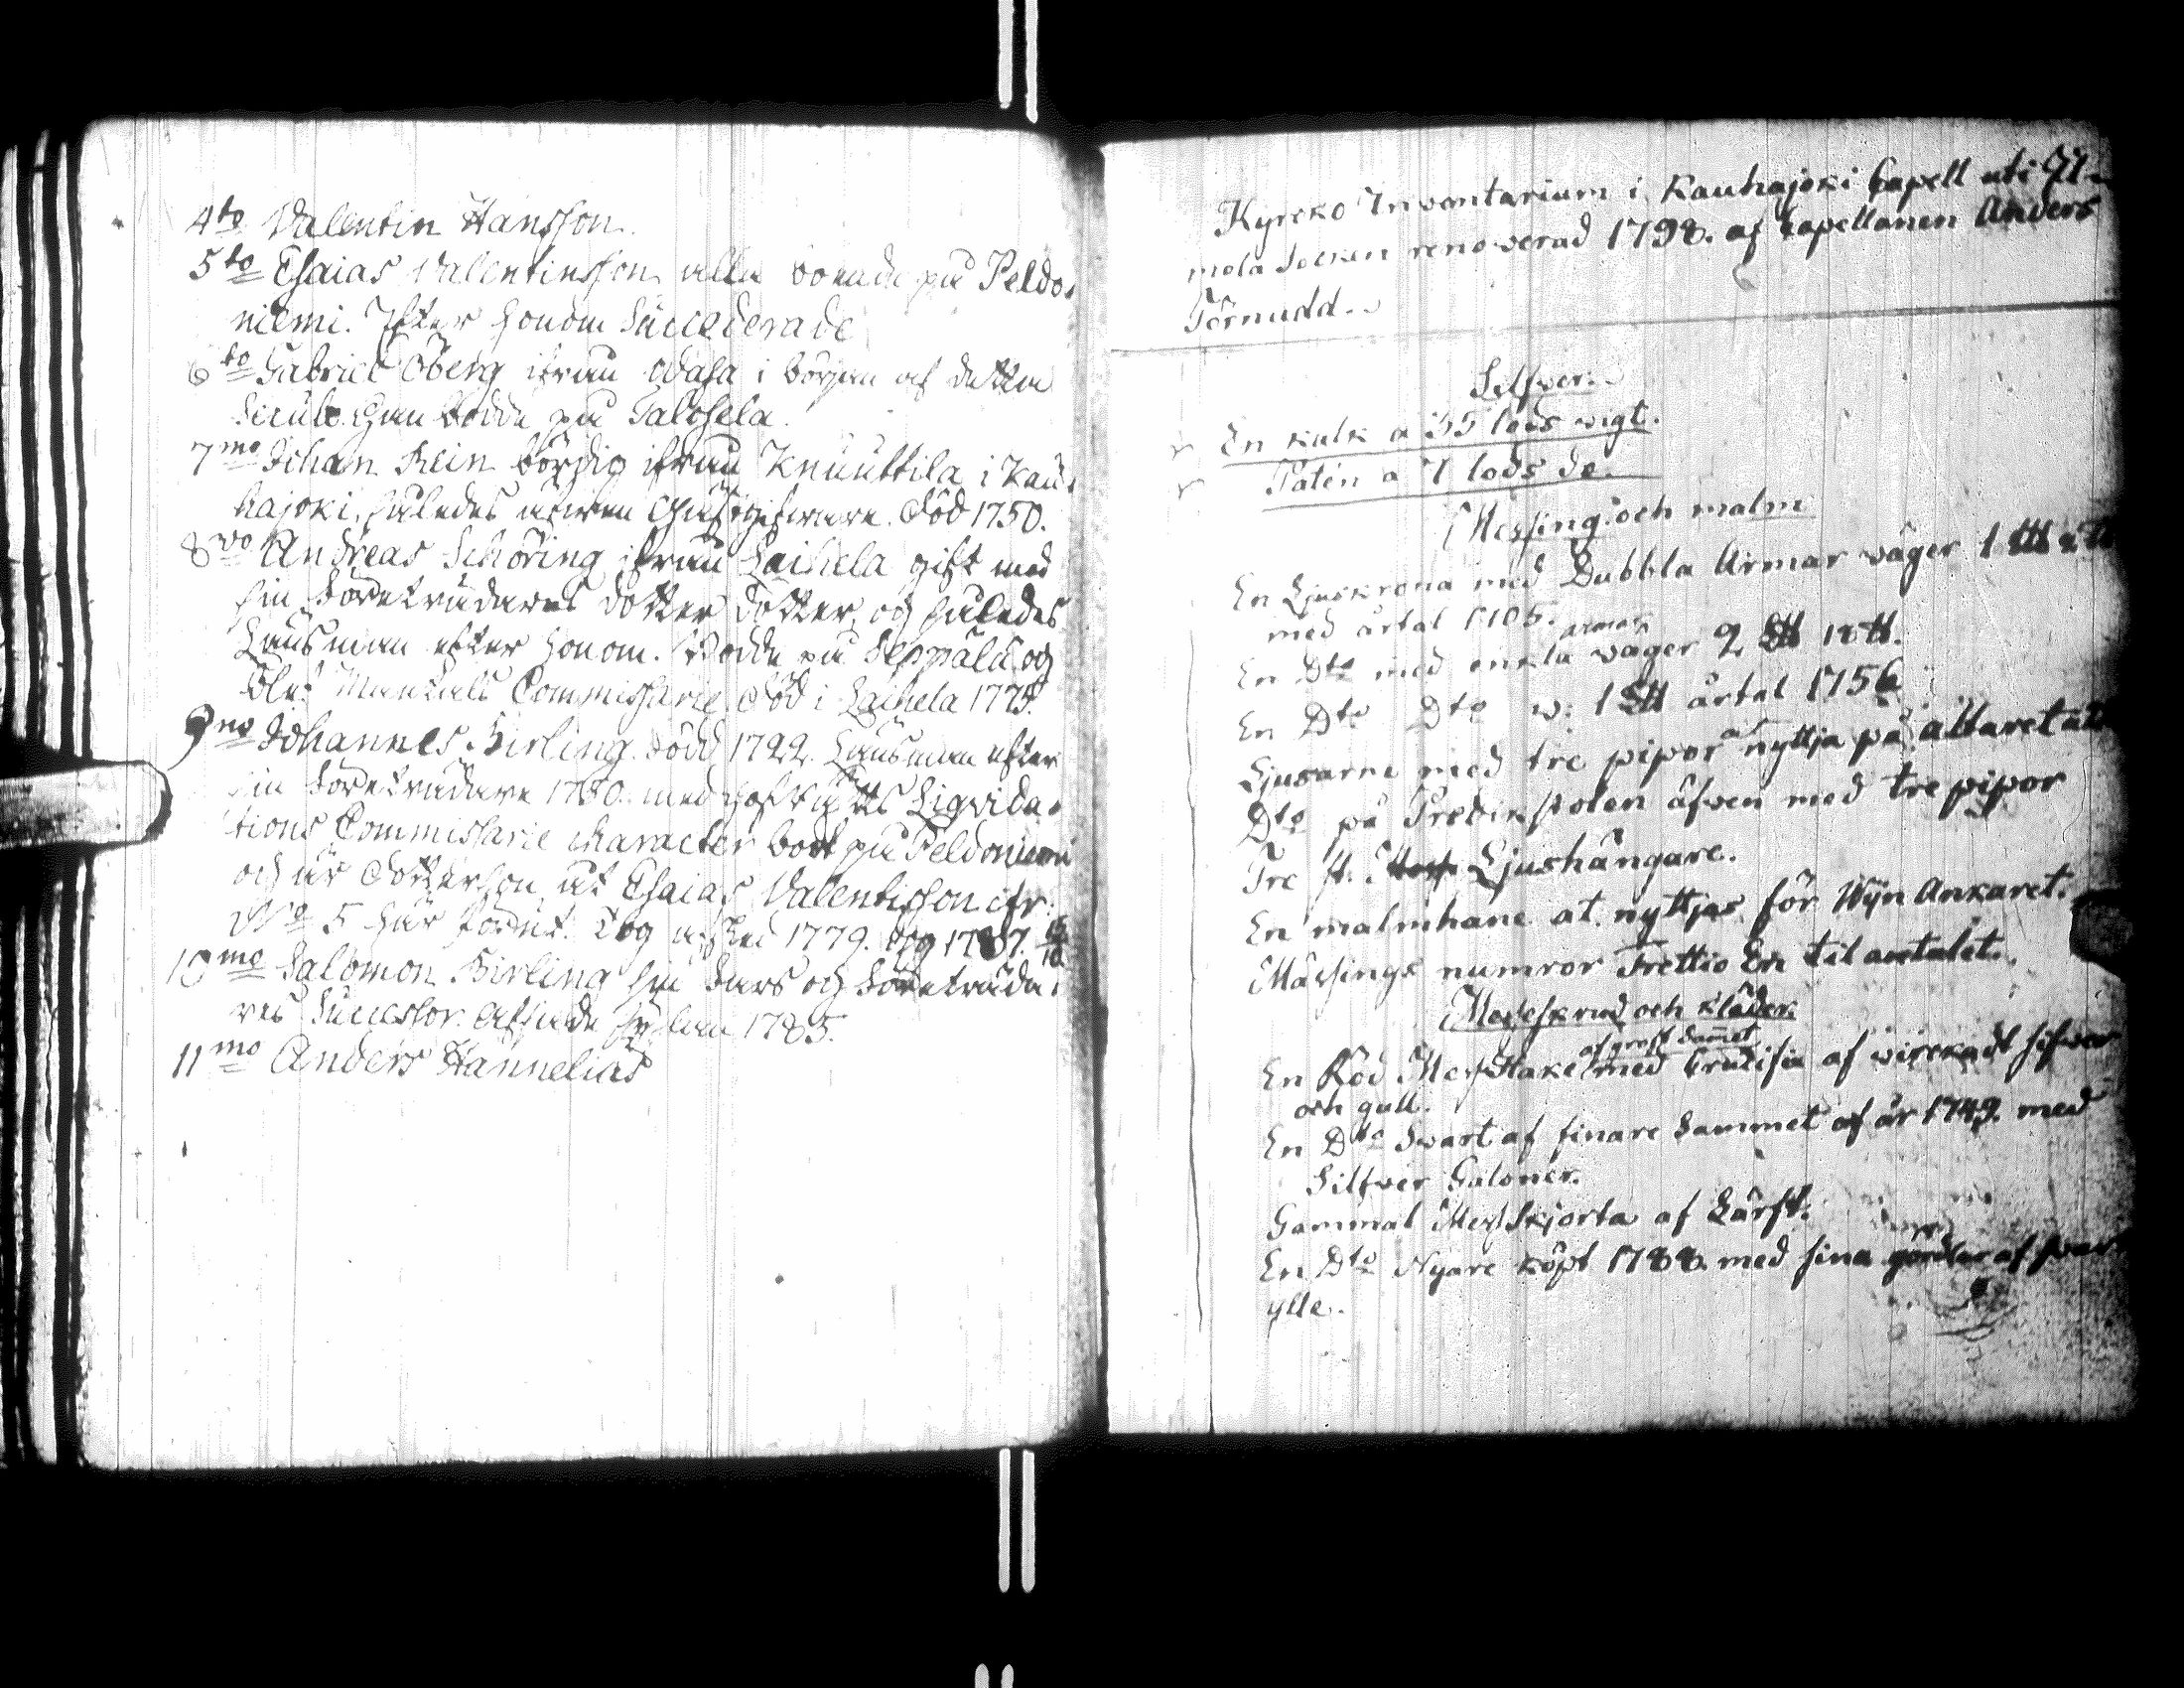 4to Valentin Hansson.
5to Esaias Valentinsson alla boende på Peldo-
niemi. Efter honom Succederade
6to Gabriel Öberg ifrån Wasa i början af detta
Secul. Han bodde på Talosela.
7mo Johan Rein bördig ifrån Knuuttila i Kau-
hajoki, således äfwen Gästgifware. Död 1750.
8vo Andreas Schöring ifrån Laihela gift med
sin Företrädares dotter Dotter, och således
Länsman efter honom. Bodde på Seppälä och
blef Mantals Commissarie. Död i Laihela 1775.
9no Johannes Hirling. Född 1722. Länsman efter
sin Företrädare 1750. med Hofrätts Liqvida-
tions Commissarie character bodt på Peldoniemi
och är Dotterson åt Esaias Valentisson ifr.
No 5 här förut. Tog afsked 1779. dog 1787.
10mo Salomon Hirling sin Fars och Företräda-
res Successor. Afsade sys̈lan 1785.
11mo Anders Hannelius
Kyrcko Inventarium i Kauhajoki Capell uti Il-
mola Socken renoverad 1798. af Capellanen Anders
Törnudd.
Silfver.
En kalk a 35 lods wigt.
Patén a 7 lods do.
Messing och malm
En Ljuskrona med Dubbla Armar wäger 1 L℔
med årtal 1705.
En Dto med enkla armar wäger 2 L℔ 18 ℔.
En Dto Dto w: 1 L℔ årtal 1756
Ljusarne med tre pipor at nyttja på altaret
Dto på Predikstolen äfven med tre pipor
Tre st. Ljushängare.
En malmhane at nyttjas för Wÿn Ankaret.
Mässings numror Trettio En til antalet.
Messeskrud och kläder.
En Röd Messhake af groft Sam̄et med Crucifix af wirckadt silfwer
och gull.
En Dto Swart af finare Sammet af år 1749. med
Silfver Galoner.
Gammal Messskjorta af Lärft.
En Dto Nyare köpt 1788. med sina af
ylle.